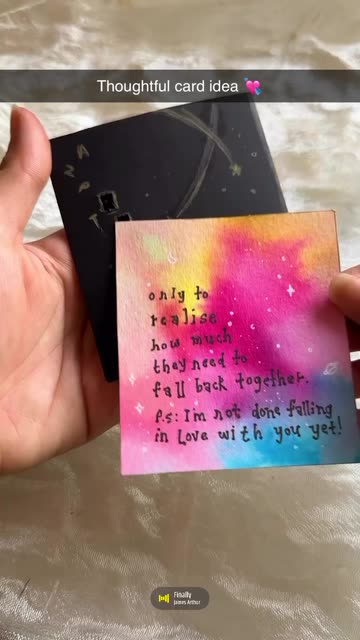 Thoughtful card idea 💘
only to
realise
how much
they need to
fall back together.
P.S: I'm not done falling
in Love with you yet!
Finally
James Arthur